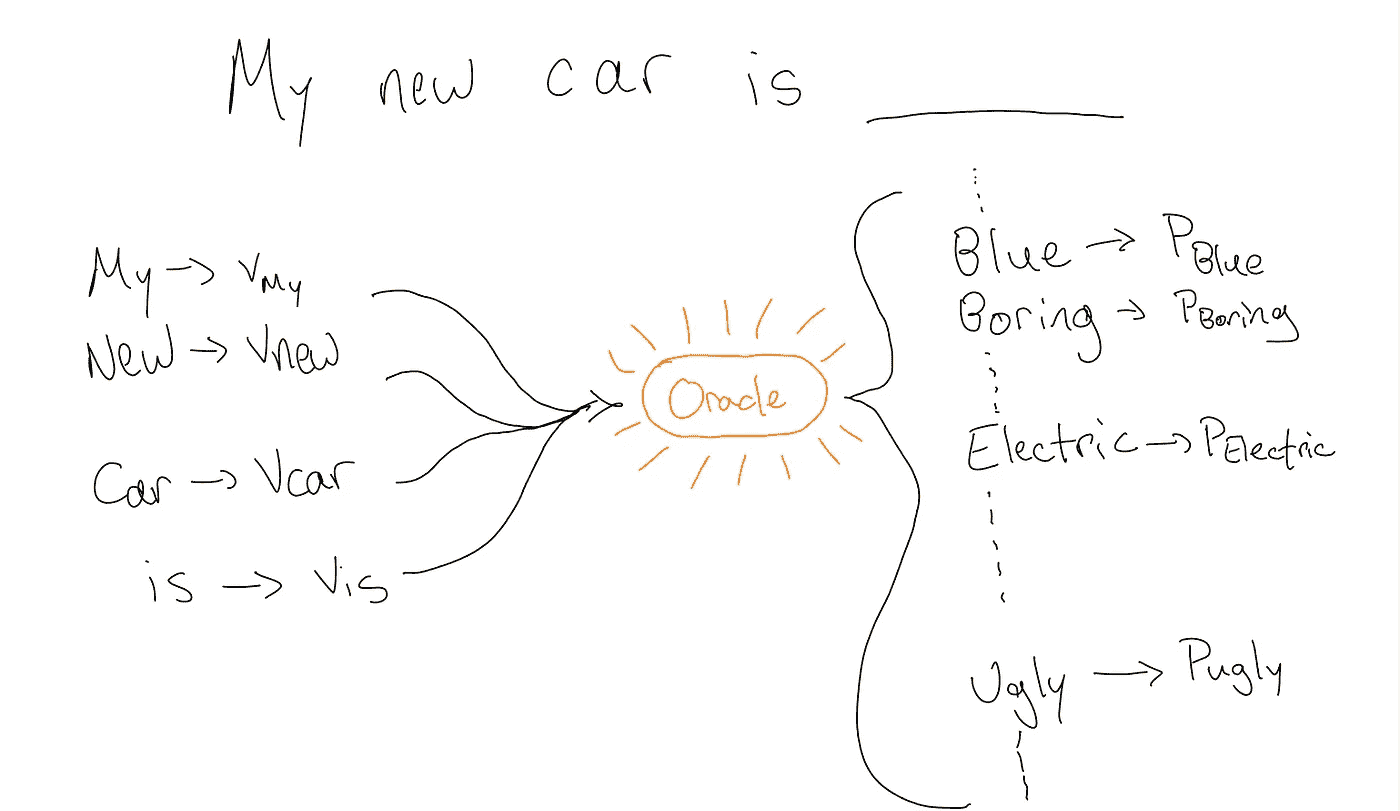 My new car is ______
My → VMy
New → Vnew
Car → Vcar
is → Vis
Oracle
Blue → PBlue
Boring → PBoring
Electric → PElectric
Ugly → Pugly